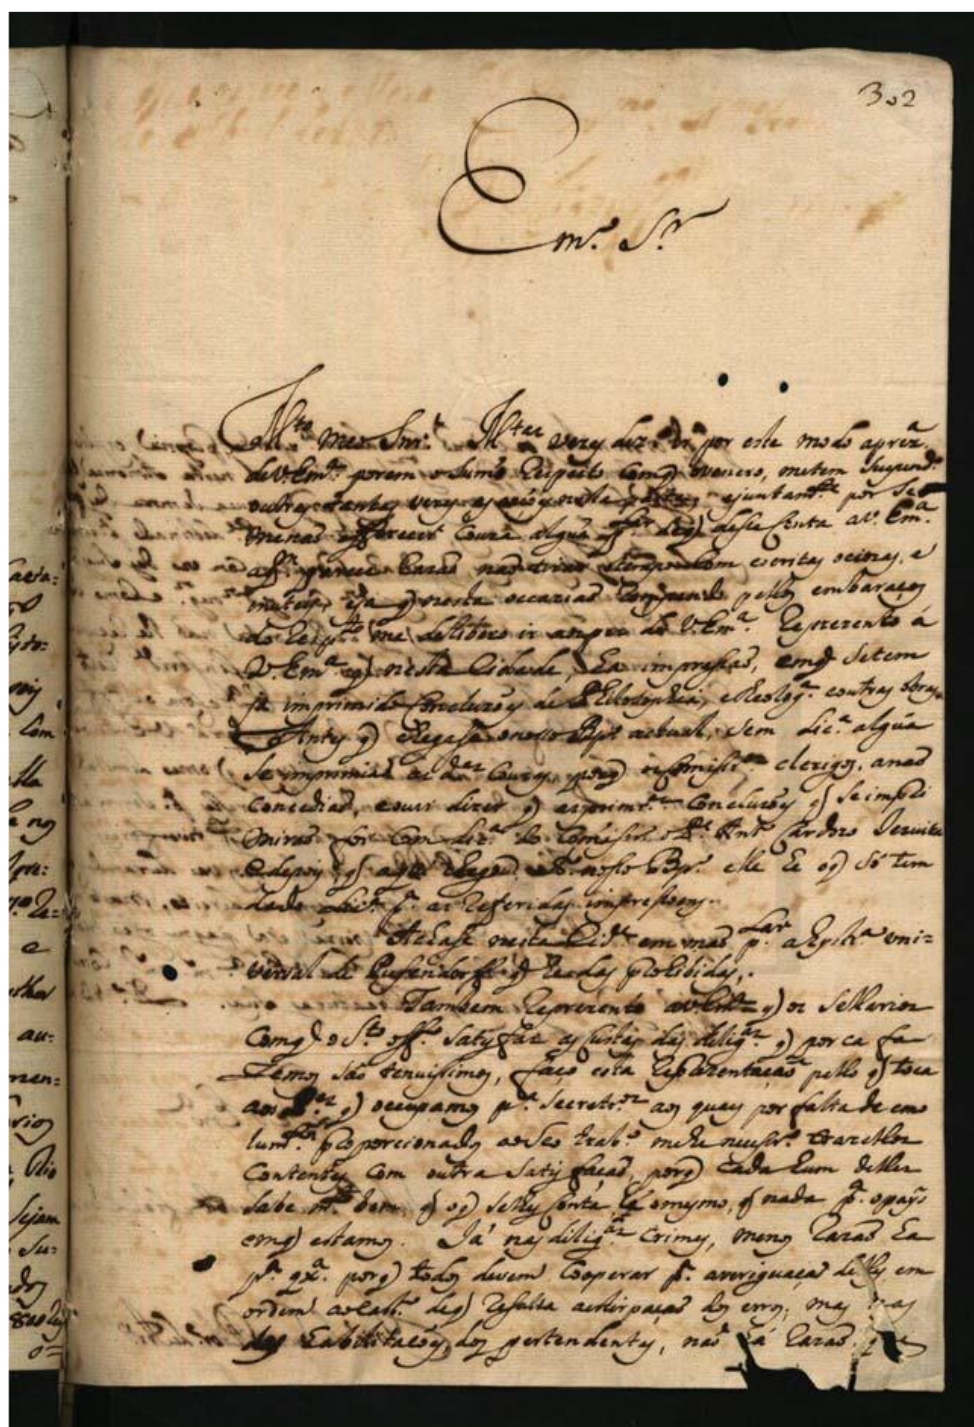 302
Em.º S.r
M.to meo Snr.r M.tas vezes dez.º ir por este modo à prez.ª
de V. Em.ª porem o sumo respeito com q̃ o venero, me tem suspend.º
outras tantas vezes por se
menos offerecer couza algũa de q̃ desse conta a V. Em.ª
parece razaõ com escritas ociozas, e
q̃ nesta occaziaõ rompendo pellos embaraços
do respt.º me delibero ir aos pes de V. Em.ª Reprezento á
V. Em.ª q̃ nesta Cidade, ha impressaõ, em q̃ se tem
ja imprimido Concluzoẽs de Philozophia, e theolog.ª e outras obras,
Antes q̃ chegasse o nosso Bpõ actual, sem lic.ª algũa
se imprimiaõ as d.as couzas, porq̃ os Comissr.os clerigos, a naõ
concediaõ, e ouvi dizer q̃ as prim.ras Concluzoẽs q̃ se impri
miraõ foi com lic.ª do Comissr.º o P.e Ant.º Cardozo Jezuita
e depois q̃ aqui chegou o nosso Bp.º elle he o q̃ só tem
dado Lic.ª p.ª as referidas impressoens.
Achase nesta Cid.e em maõ p.ar a Hystr.ª uni=
versal de Pufendorff q̃ he das prohibidas.
Tambem reprezento a V. Em.ª q̃ os sellarios
com q̃ o S.to off.º satysfaz as custas das delig.as q̃ por ca fa
zemos saõ tenuissimos, faço esta reprezentaçaõ pello q̃ toca
aos q̃ occupamos p.ª secretr.os aos quaes por falta de emo
lum.tos proporcionados ao seo trab.º me he necessr.º trazellos
contentes com outra satysfaçaõ, porq̃ cada hum delles
sabe m.to bem, q̃ o q̃ se lhes conta he o mesmo, q̃ nada p.ª o pays
em q̃ estamos. Já nas dilig.as crimes, menos razaõ ha
p.ª qx.ª porq̃ todos devem cooperar p.ª averiguaçaõ delles em
ordem ao cast.º de q̃ rezulta a extirpaçaõ dos erros; mas nas
das habilitaçoẽs dos pertendentes, naõ há razaõ